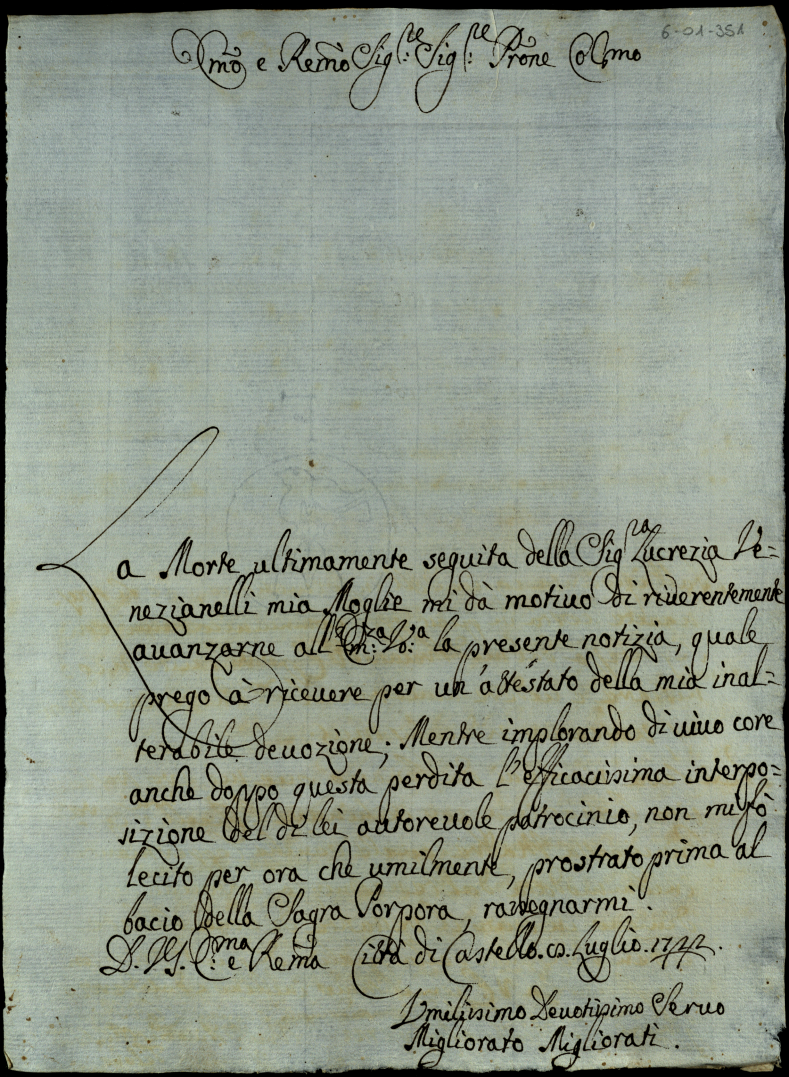 6-01-351
Emõ e Remõ Sig.re Sig.re Prõne Colmo
La Morte ultimamente seguita della Sig.ra Lucrezia Ve=
nezianelli mia Moglie mi dà motiuo di riuerentemente
auanzarne all'Em:za V:ra la presente notizia, quale
prego à riceuere per un'attestato della mia inal=
terabile deuozione; Mentre implorando di uiuo core
anche doppo questa perdita l'efficacissima interpo=
sizione del di lei autoreuole patrocinio, non mi fò
lecito per ora che umilmente, prostrato prima al
bacio della Sagra Porpora, rassegnarmi.
D. V. E.ma e Remã Città di Castello. Luglio. 1722.
Vmilissimo Deuotissimo Seruo
Migliorato Migliorati.